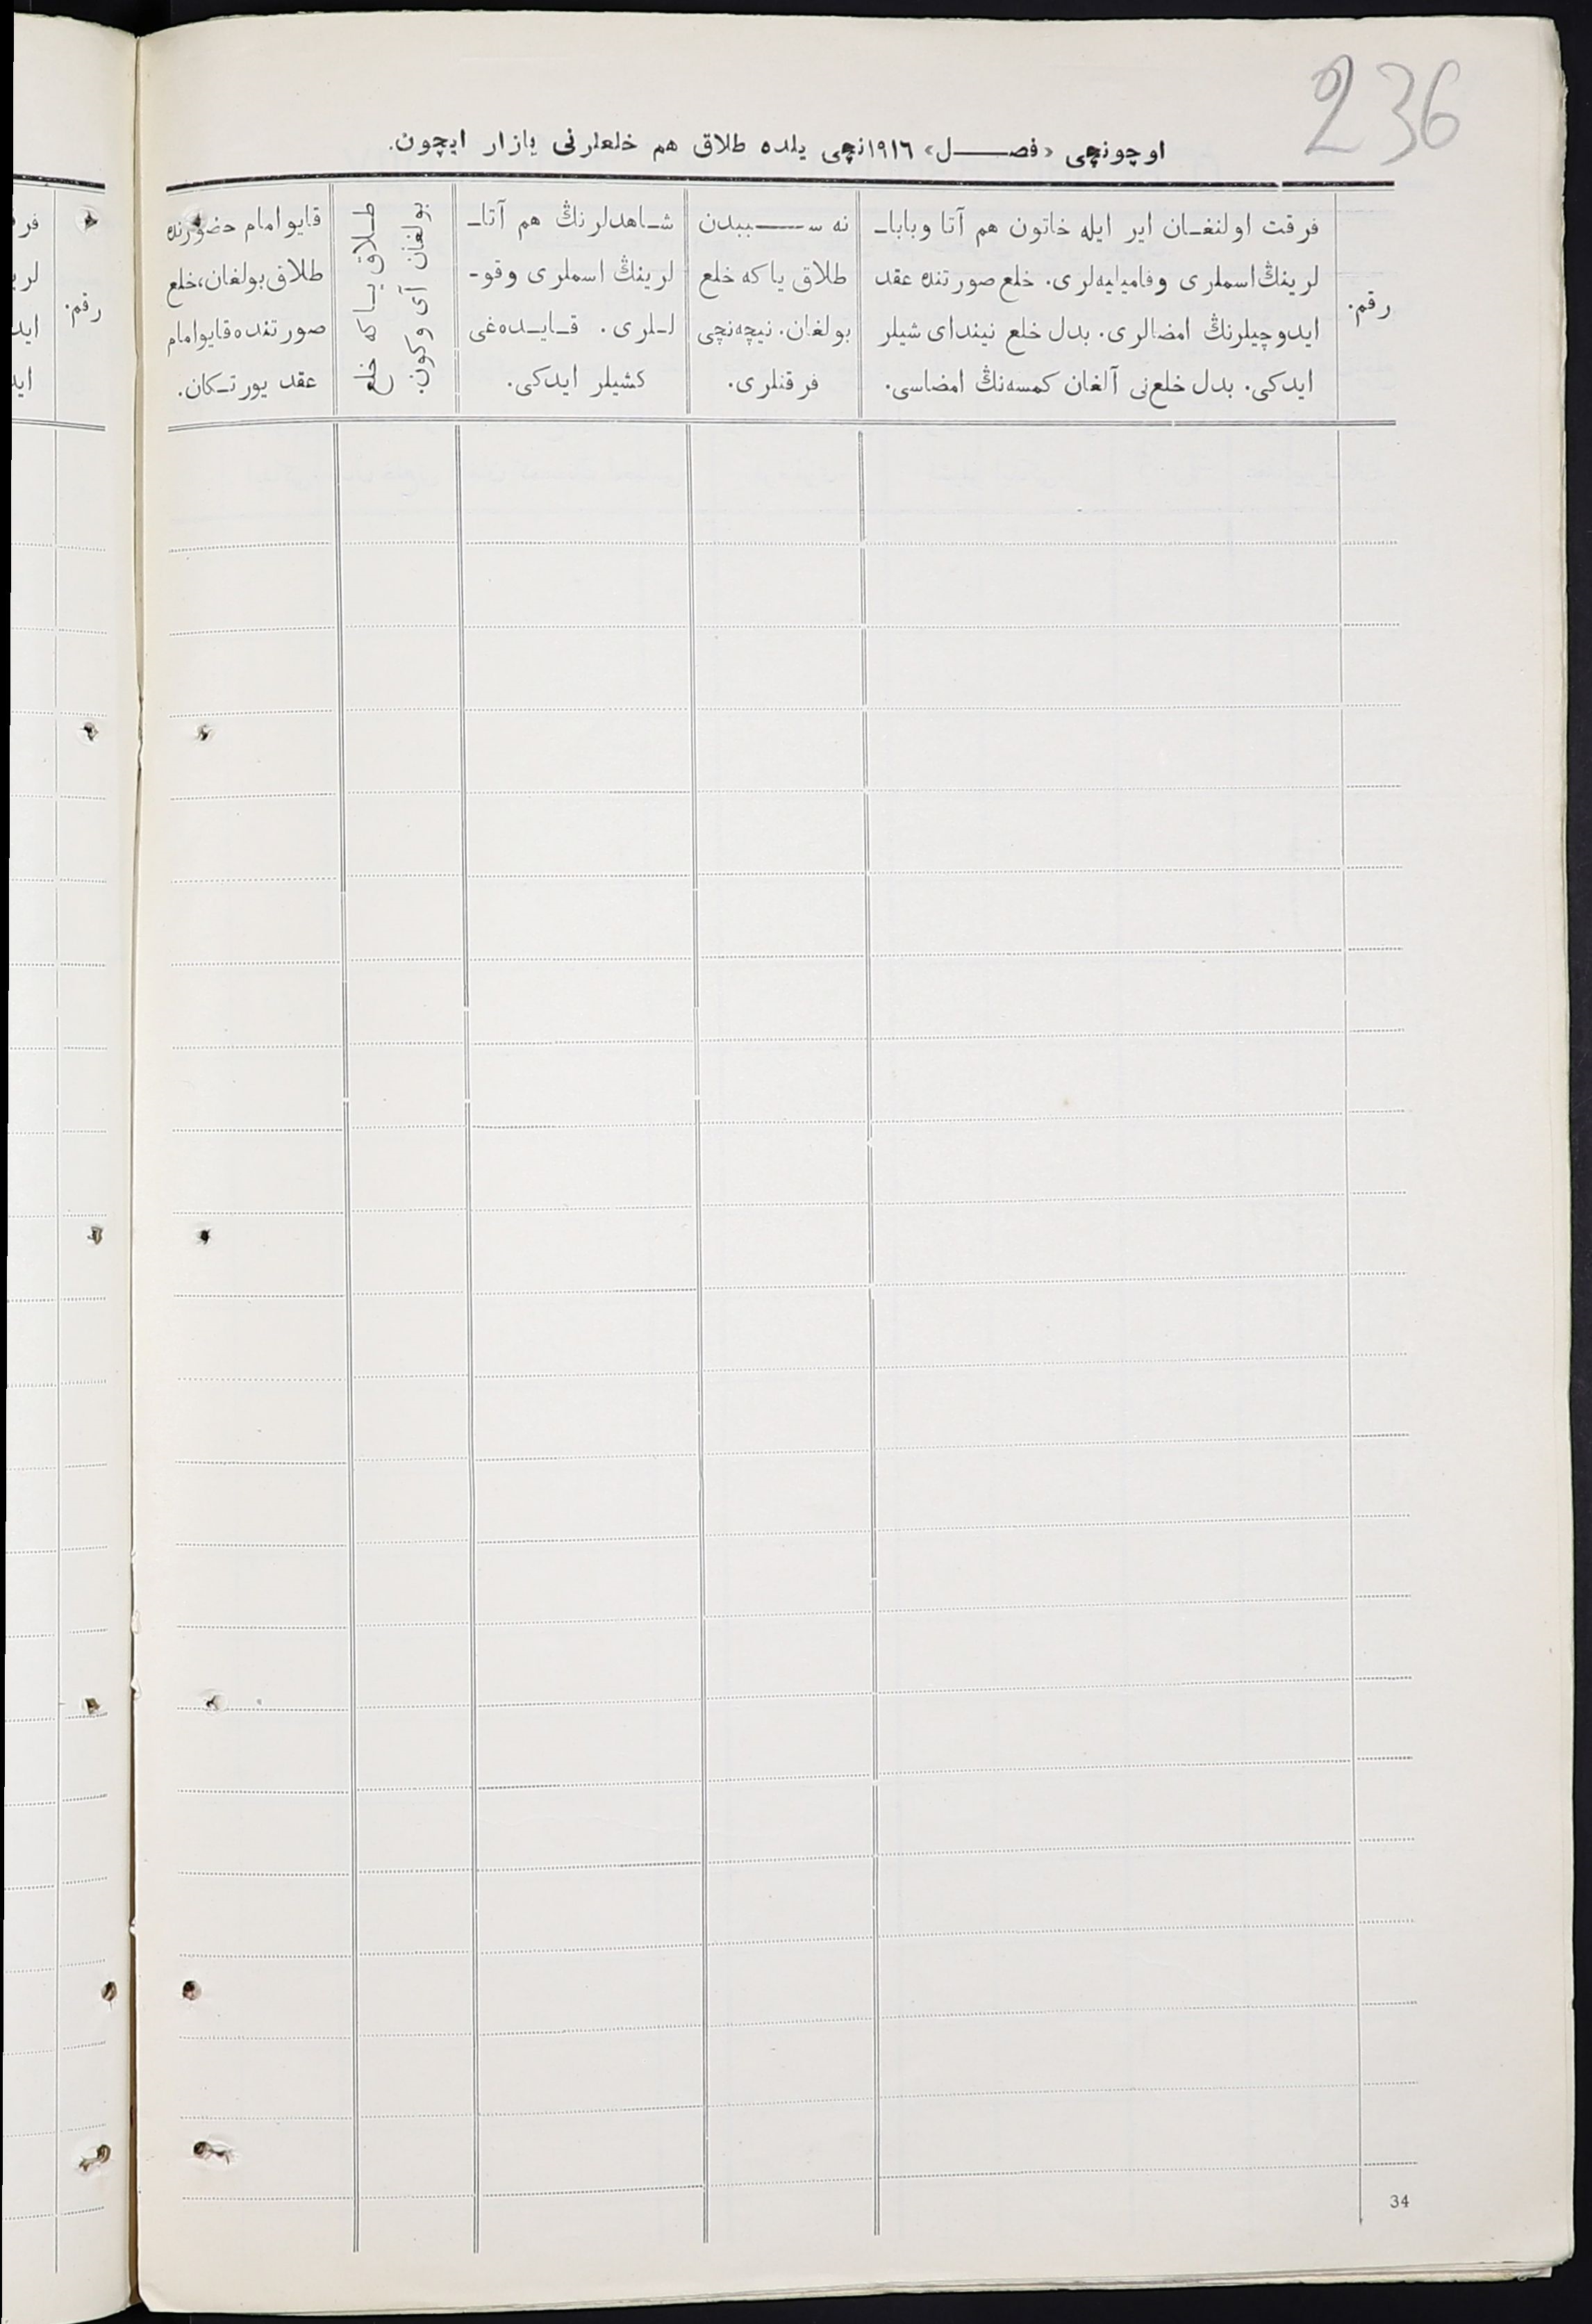 236
اوچونچی «فصل» ١٩١٦نچی يلده طلاق هم خلعلرنی يازار ايچون.
رقم.
فرقت اولنغان اير ايله خاتون هم آتا وبابا-
لرينڭ اسملری وفاميليه‌لری. خلع صورتنده عقد
ايدوچيلرنڭ امضالری. بدل خلع نيندای شيلر
ايدكی. بدل خلع‌نی آلغان كمسه‌نڭ امضاسی.
نه سببدن
طلاق ياكه خلع
بولغان. نيچه‌نچی
فرقتلری.
شاهدلرنڭ هم آتا-
لرينڭ اسملری وفو-
لـلری. قايده‌غی
كشيلر ايدكی.
طلاق ياكه خلع
بولغان آی وكون.
قايو امام حضورنده
طلاق بولغان، خلع
صورتنده قايو امام
عقد يورتكان.
رقم.
فر
لر
ايد
ايد
34